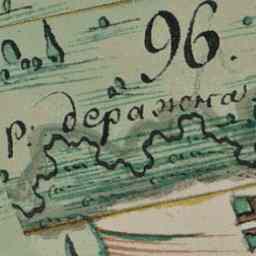 96.
р: деражна